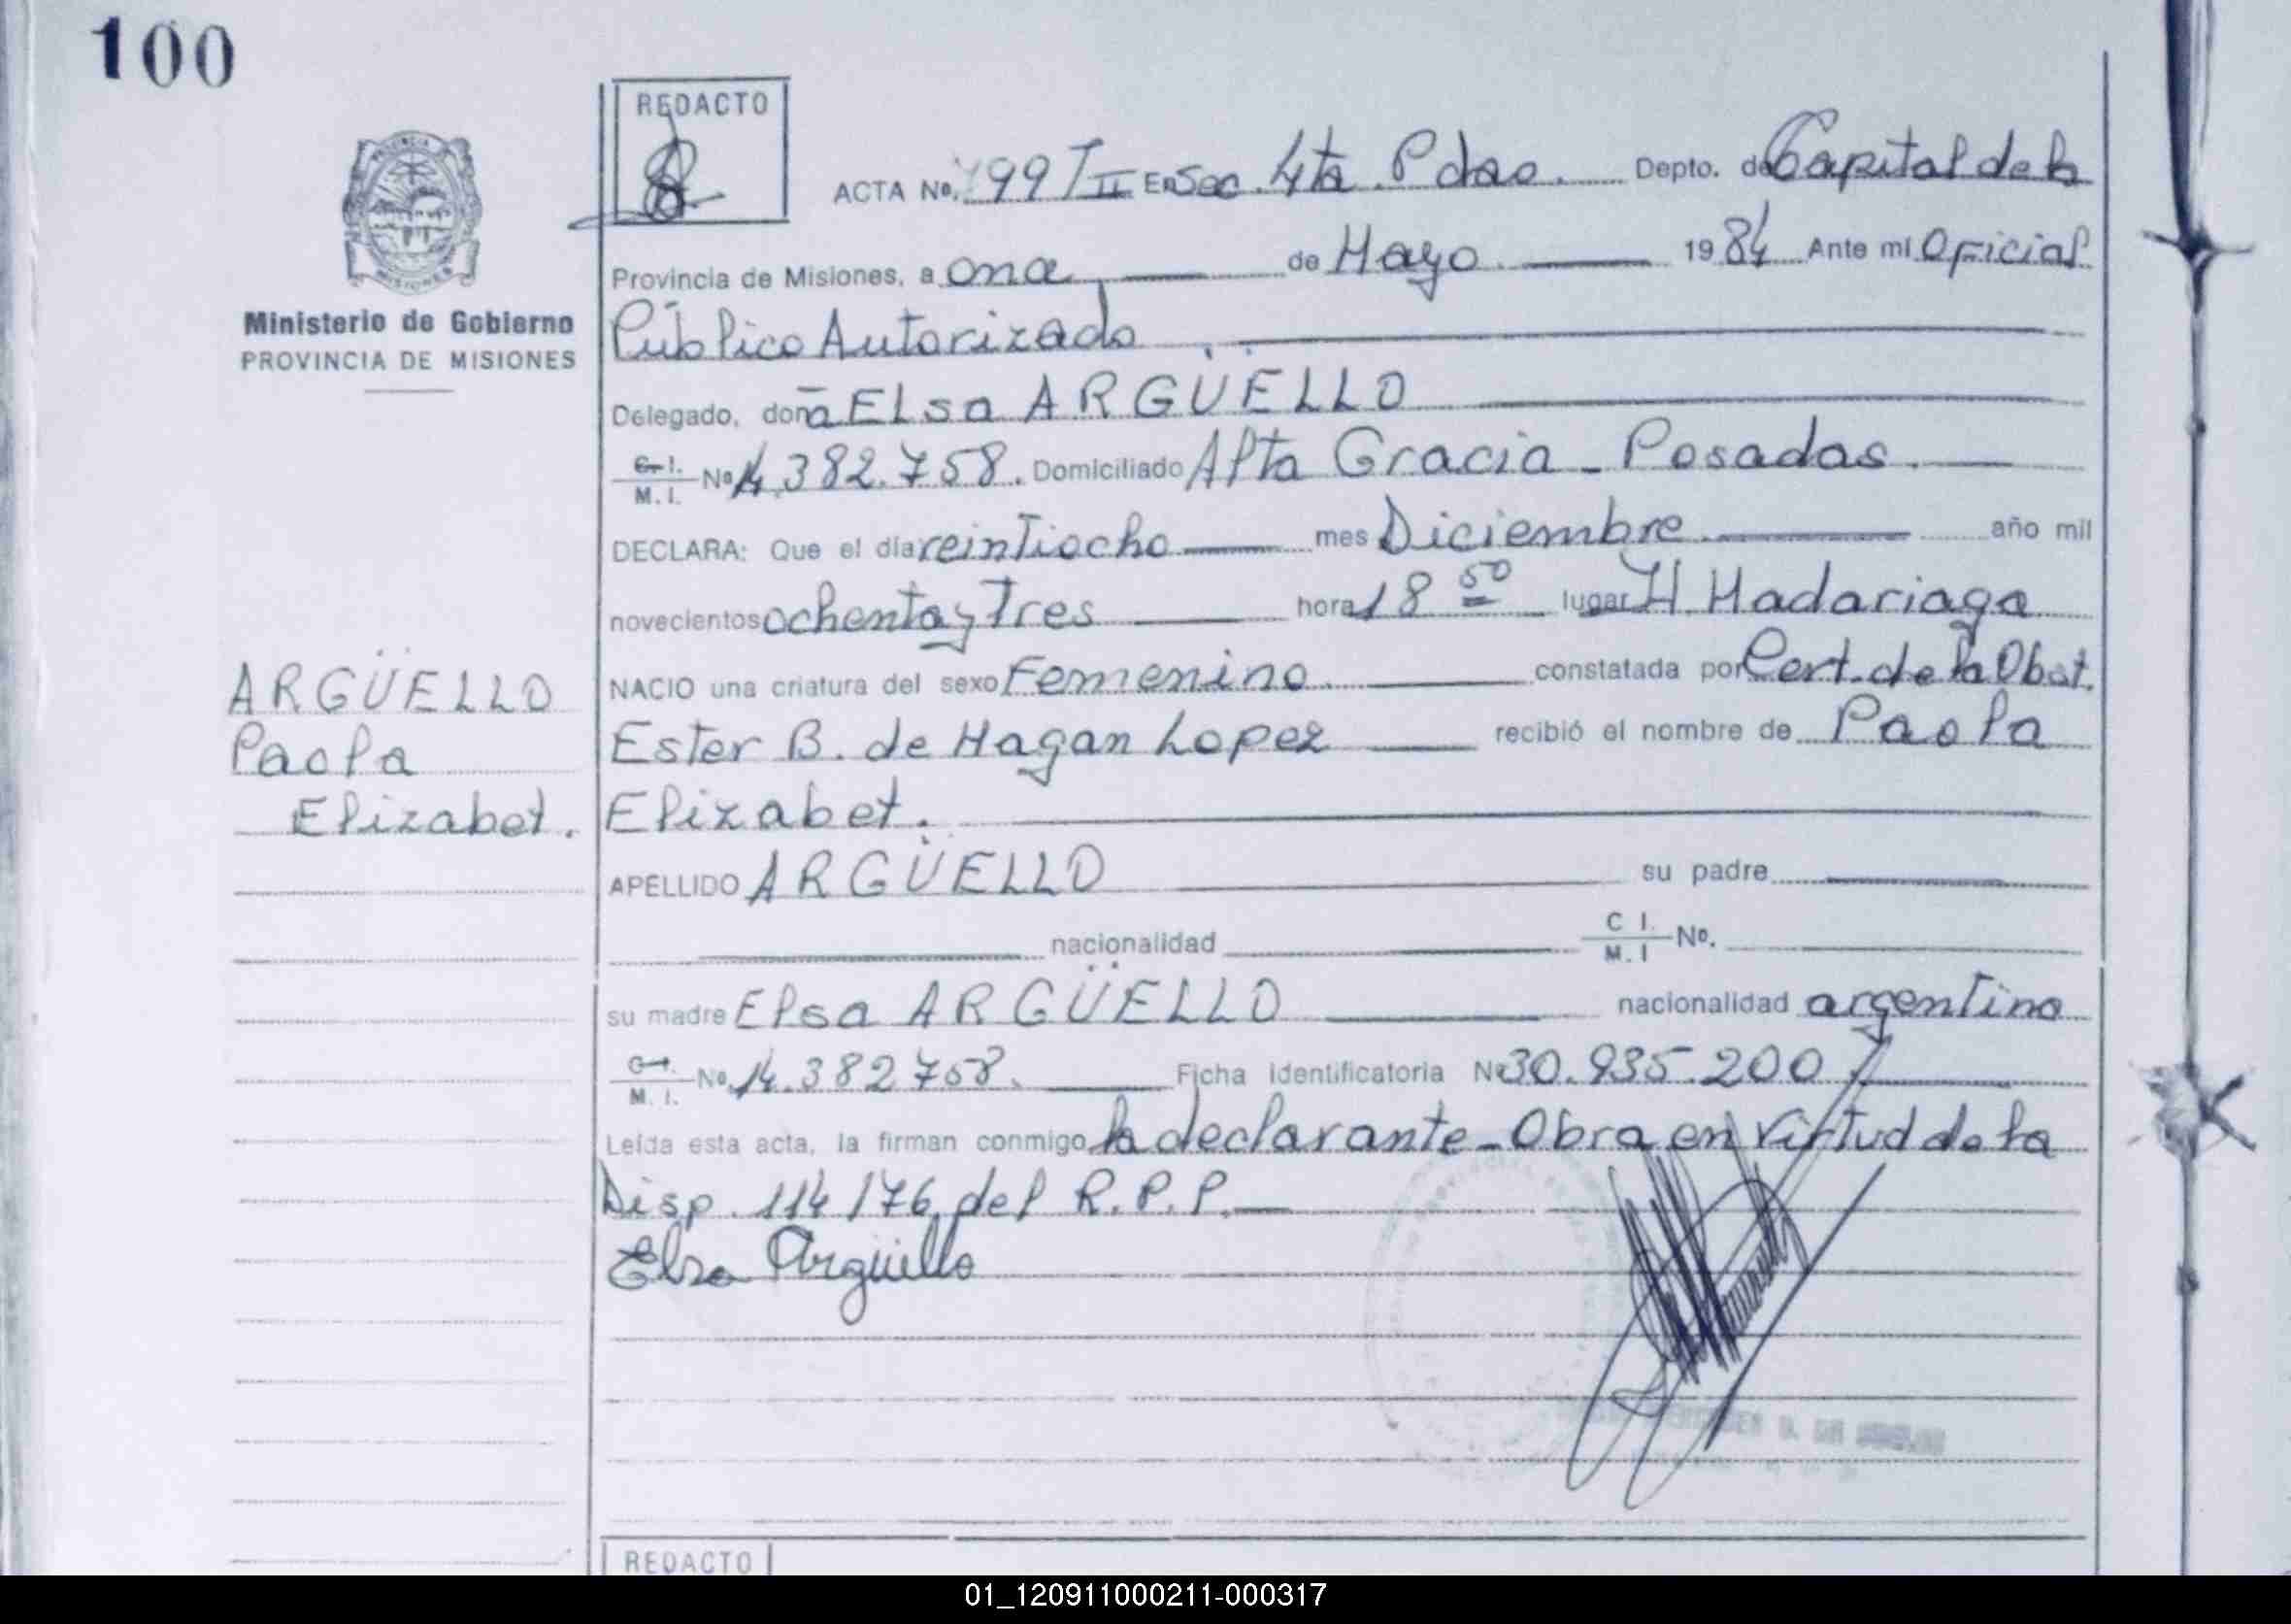 100
REDACTO
ACTA No. 199 T II En Sec. 4ta Pdas. Depto. de Capital de la
Provincia de Misiones, a once de Mayo 1984 Ante mí Oficial
Público Autorizado
Ministerio de Gobierno
PROVINCIA DE MISIONES
Delegado, doña Elsa ARGÜELLO
C. I. M. I. No 14.382.758. Domiciliado Alta Gracia - Posadas.
DECLARA: Que el día veintiocho mes Diciembre año mil
novecientos ochenta y Tres hora 18 50 lugar H. Madariaga
NACIO una criatura del sexo Femenino constatada por Cert. de la Obst.
Ester B. de Hagan Lopez recibió el nombre de Paola
Elizabet.
ARGÜELLO
Paola
Elizabet.
APELLIDO ARGÜELLO su padre
nacionalidad C I. M. I No.
su madre Elsa ARGÜELLO nacionalidad argentina
M. I. No. 14.382758. Ficha Identificatoria No 30.935.200
Leída esta acta, la firman conmigo la declarante - Obra en virtud de la
Disp. 114/76 del R.P.P.
Elsa Argüello
REDACTO
01_120911000211-000317